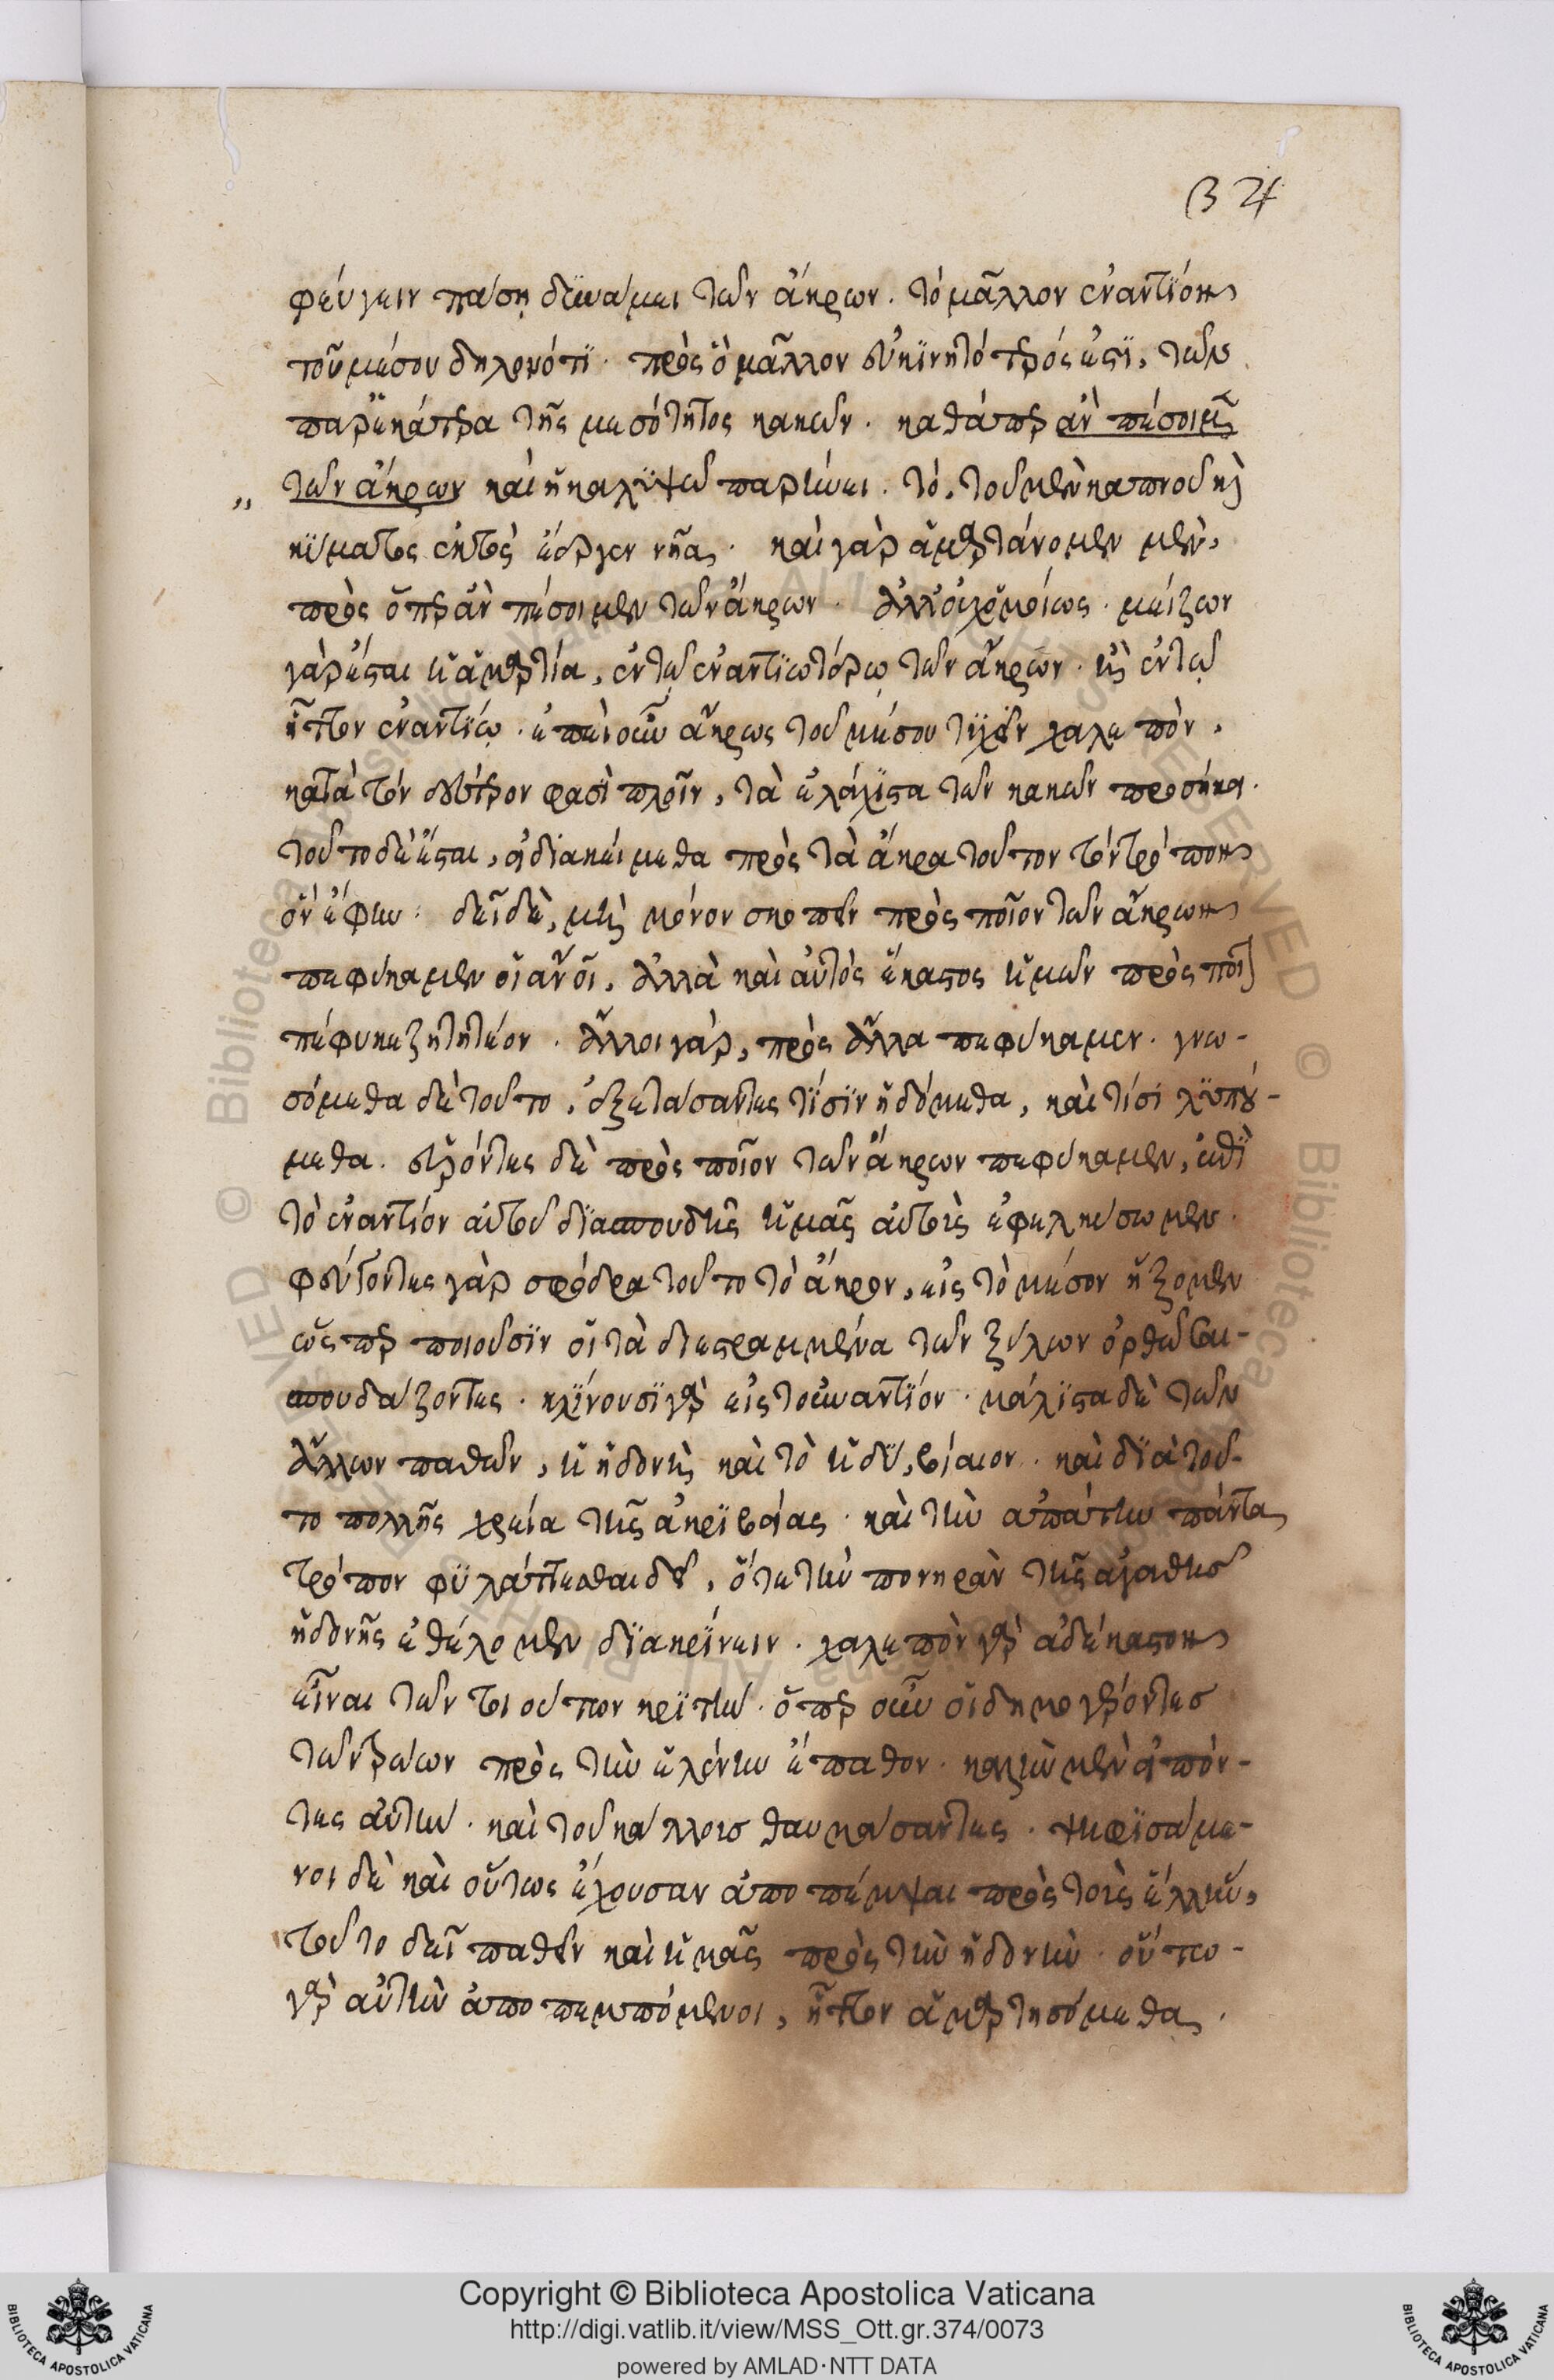 32
φεύγειν πάση δυνάμει τῶν ἄκρων. τὸ μᾶλλον ἐναντίον
τοῦ μέσου δηλονότι. πρὸς ὃ μᾶλλον εὐκινητότερός ἐστι, τῶν
παρ' ἑκάτερα τῆς μεσότητος κακῶν. καθάπερ ἂν πέσοιμεν
τῶν ἄκρων καὶ ἡ καλυψὼ παρήνει. τὸ, τοῦ μὲν καπνοῦ καὶ
κύματος ἐκτὸς ἔεργεν νῆα. καὶ γὰρ ἁμαρτάνομεν μὲν,
πρὸς ὅπερ ἂν πέσοιμεν τῶν ἄκρων. ἀλλ' οὐχ ὁμοίως. μείζων
γὰρ ἔσται ἡ ἁμαρτία, ἐν τῷ ἐναντιωτέρω τῶν ἄκρων. ἢ ἐν τῷ
ἧττον ἐναντίω. ἐπεὶ οὖν ἄκρως τοῦ μέσου τυχεῖν χαλεπὸν,
κατὰ τὸν δεύτερον φασὶ πλοῦν, τὰ ἐλάχιστα τῶν κακῶν
τοῦτο δὲ ἔσται, εἰ διακείμεθα πρὸς τὰ ἄκρα τοῦτον τὸν τρόπον
ὃν ἔφην. δεῖ δὲ, μὴ μόνον σκοπεῖν πρὸς ποῖον τῶν ἄκρων
πεφύκαμεν οἱ ἄνοι, ἀλλὰ καὶ αὐτὸς ἕκαστος ἡμῶν πρὸς ποῖον
πέφυκε ζητητέον. ἄλλοι γὰρ, πρὸς ἄλλα πεφύκαμεν. γνω-
σόμεθα δὲ τοῦτο, ἐξετάσαντες τίσιν ἡδόμεθα, καὶ τίσι λυπού-
μεθα. εὑρόντες δὲ πρὸς ποῖον τῶν ἄκρων πεφύκαμεν, ἐπὶ
τὸ ἐναντίον αὐτοῦ διασπουδῆς ἡμᾶς αὐτοὺς ἐφελκύσωμεν.
φεύγοντες γὰρ σφόδρα τοῦτο τὸ ἄκρον, εἰς τὸ μέσον ἥξομεν
ὥσπερ ποιοῦσιν οἱ τὰ διεστραμμένα τῶν ξύλων ὀρθῶσαι
σπουδάζοντες. κλίνουσι γὰρ εἰς τοὐναντίον. μάλιστα δὲ τῶν
ἄλλων παθῶν, ἡ ἡδονὴ καὶ τὸ ἡδὺ, βίαιον. καὶ διὰ τοῦ-
το πολλῆς χρεία τῆς ἀκριβείας. καὶ τὴν ἀπάτην πάντα
τρόπον φυλάττεσθαι δεῖ, ὅτε τὴν πονηρὰν τῆς ἀγαθῆς
ἡδονῆς ἐθέλομεν διακρίνειν. χαλεπὸν γὰρ ἀδέκαστον
εἶναι τῶν τοιούτων κριτὴν. ὅπερ οὖν οἱ δημογέροντες
τῶν τρώων πρὸς τὴν ἑλένην ἔπαθον. καλὴν μὲν εἰπόν-
τες αὐτὴν. καὶ τοῦ κάλλους θαυμάσαντες. ψηφισάμε-
νοι δὲ καὶ οὕτως ἔχουσαν ἀποπέμψαι πρὸς τοὺς ἕλληνας,
τοῦτο δεῖ παθεῖν καὶ ἡμᾶς πρὸς τὴν ἡδονὴν. οὕτω
γὰρ αὐτὴν ἀποπεμπόμενοι, ἧττον ἁμαρτησόμεθα.
Copyright © Biblioteca Apostolica Vaticana
http://digi.vatlib.it/view/MSS_Ott.gr.374/0073
powered by AMLAD·NTT DATA